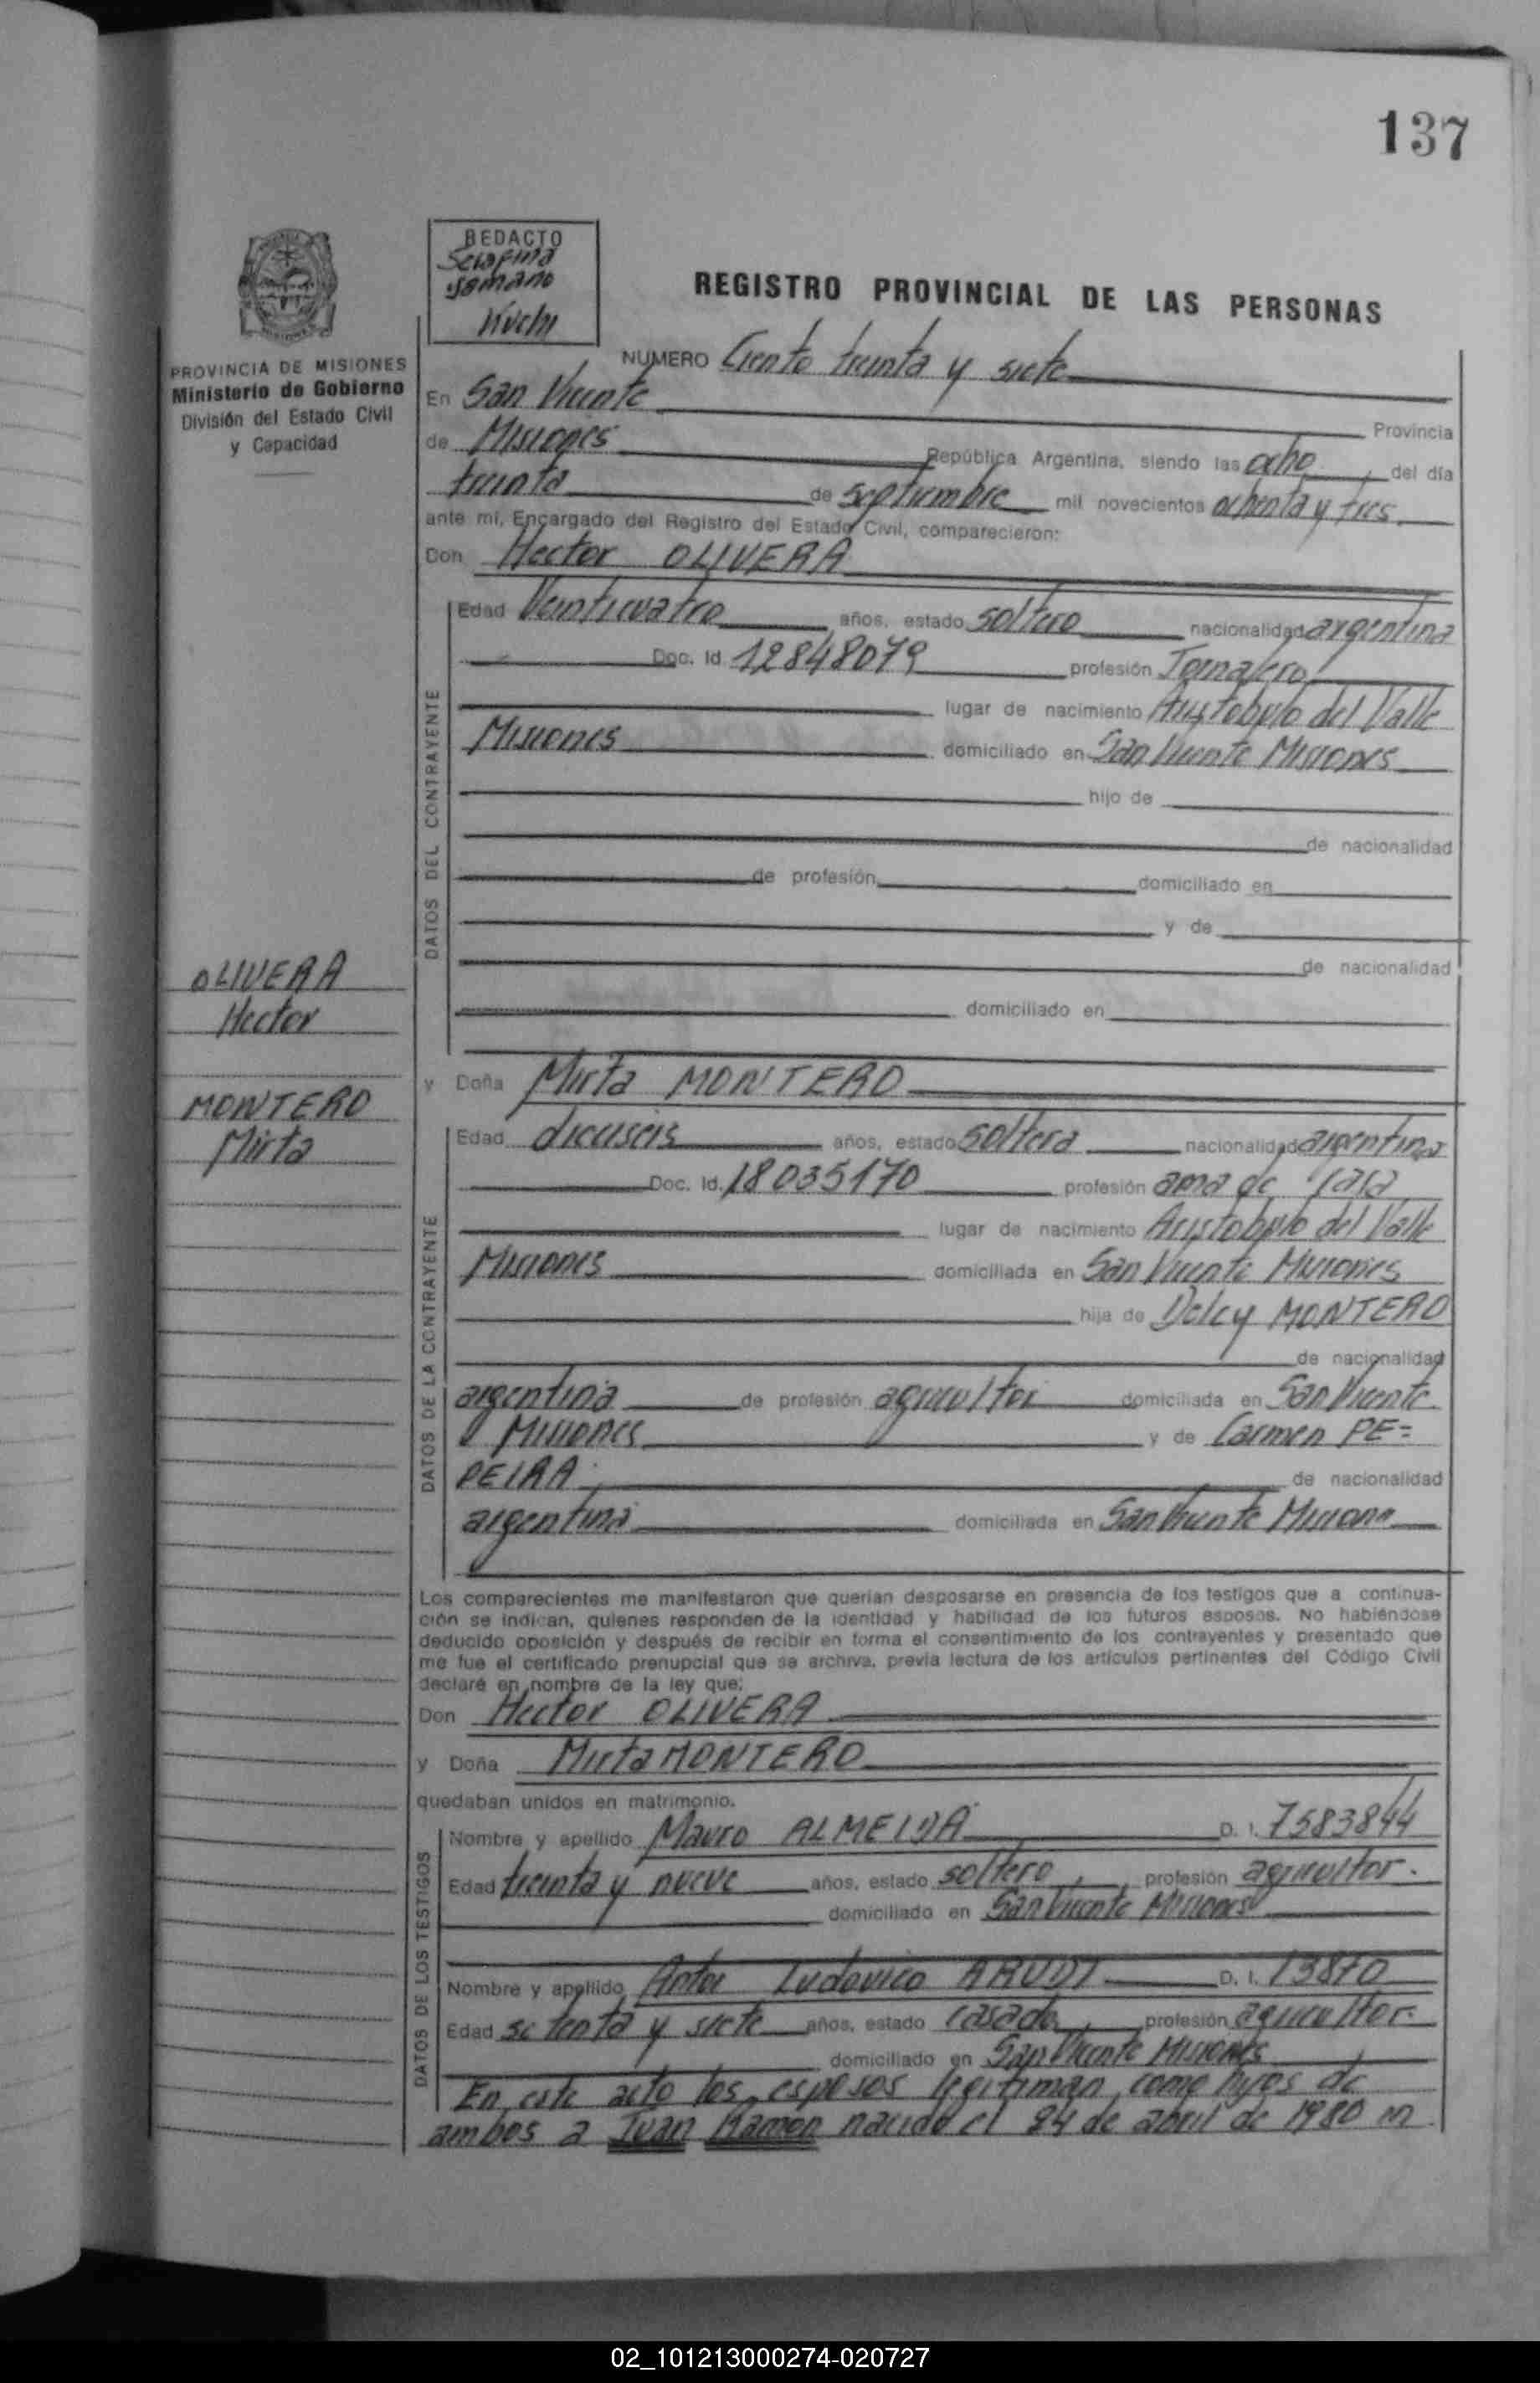 137
REDACTO
Serafina
Romano
REGISTRO PROVINCIAL DE LAS PERSONAS
PROVINCIA DE MISIONES
Ministerio de Gobierno
División del Estado Civil
y Capacidad
NUMERO Ciento treinta y siete
En San Vicente Provincia
de Misiones República Argentina, siendo las ocho, del día
treinta de septiembre mil novecientos ochenta y tres
ante mí, Encargado del Registro del Estado Civil, comparecieron:
Don Hector OLIVERA
DATOS DEL CONTRAYENTE
Edad Veinticuatro años, estado soltero nacionalidad argentina
Doc. Id. 12848079 profesión Jornalero
lugar de nacimiento Aristobulo del Valle
Misiones domiciliado en San Vicente Misiones
hijo de
de nacionalidad
de profesión domiciliado en
y de
de nacionalidad
domiciliado en
OLIVERA
Hector
MONTERO
Mirta
y Doña Mirta MONTERO
DATOS DE LA CONTRAYENTE
Edad dieciseis años, estado soltera nacionalidad argentina
Doc. Id. 18035170 profesión ama de casa
lugar de nacimiento Aristobulo del Valle
Misiones domiciliada en San Vicente Misiones
hija de Delcy MONTERO
de nacionalidad
argentina de profesión agricultor domiciliada en San Vicente
Misiones y de Carmen PE=
REIRA de nacionalidad
argentina domiciliada en San Vicente Misiones
Los comparecientes me manifestaron que querían desposarse en presencia de los testigos que a continua-
ción se indican, quienes responden de la identidad y habilidad de los futuros esposos. No habiéndose
deducido oposición y después de recibir en forma el consentimiento de los contrayentes y presentado que
me fue el certificado prenupcial que se archiva, previa lectura de los artículos pertinentes del Código Civil
declaré en nombre de la ley que:
Don Hector OLIVERA
y Doña Mirta MONTERO
quedaban unidos en matrimonio.
DATOS DE LOS TESTIGOS
Nombre y apellido Mauro ALMEIDA D. I. 7583844
Edad treinta y nueve años, estado soltero, profesión agricultor.
domiciliado en San Vicente Misiones
Nombre y apellido Ludovico D. I. 13870
Edad setenta y siete años, estado casado, profesión agricultor.
domiciliado en San Vicente Misiones
En este acto los esposos legitiman como hijos de
ambos a Juan Ramon nacido el 24 de abril de 1980 en
02_101213000274-020727